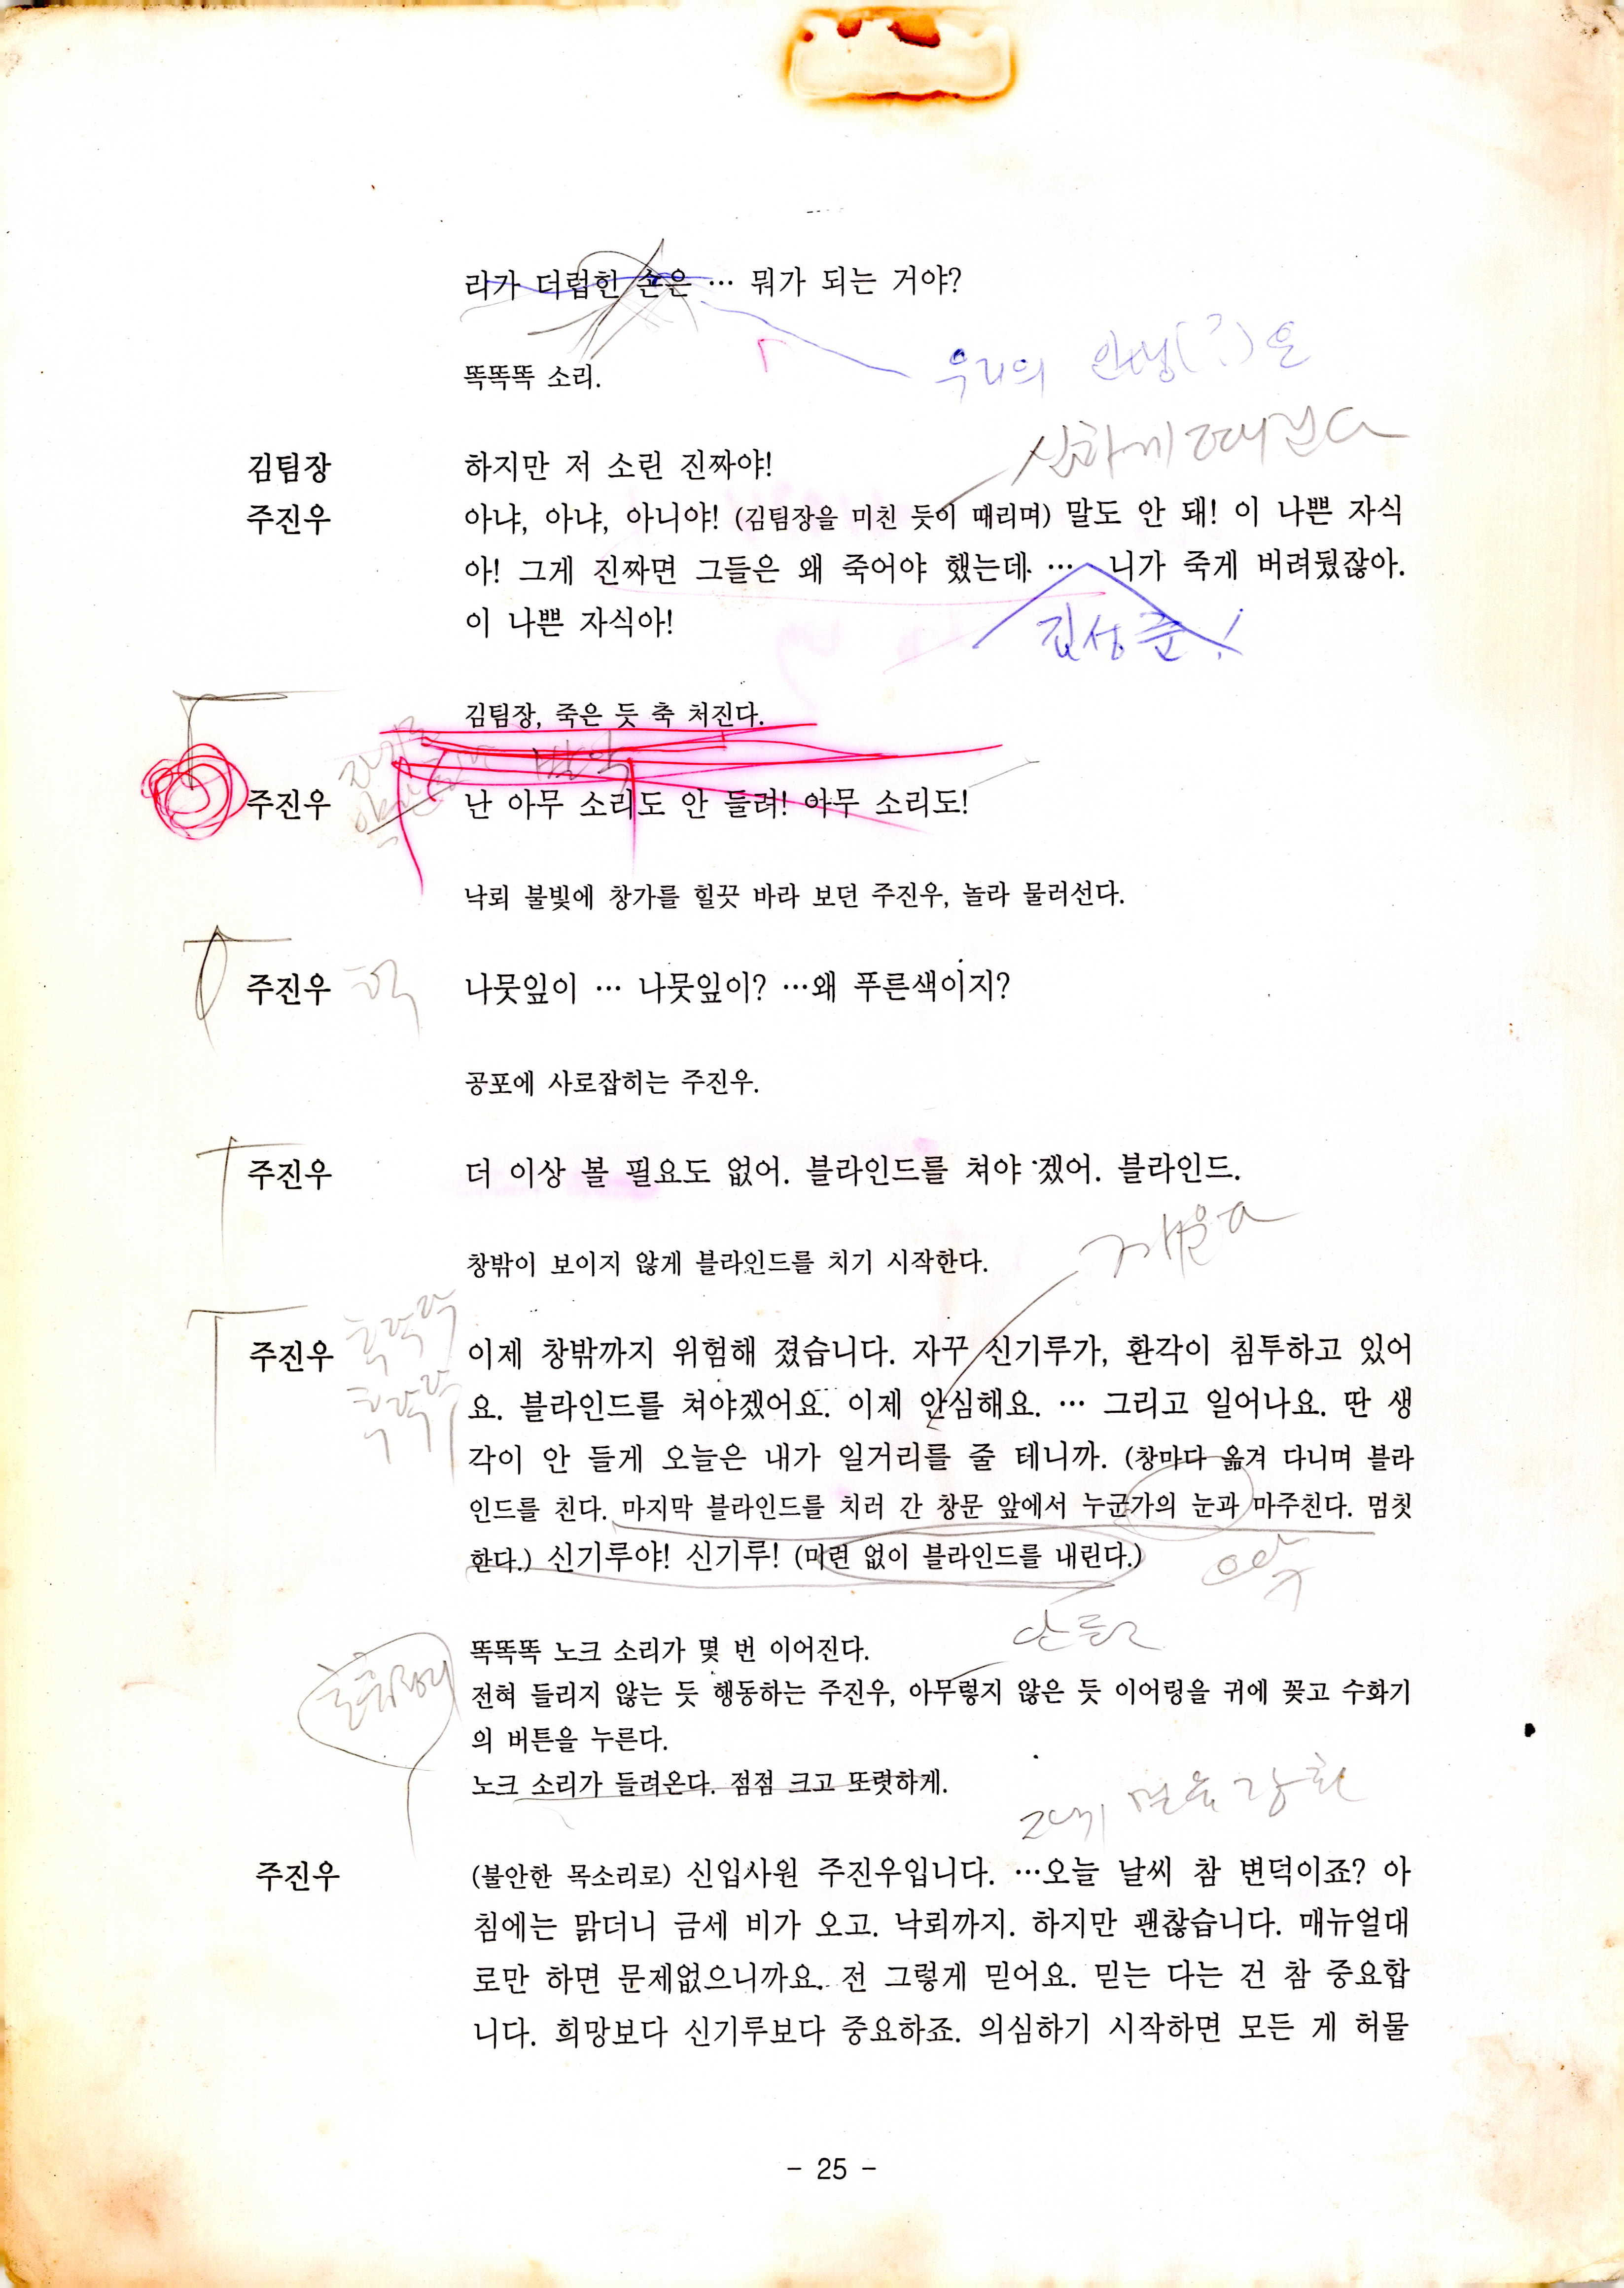 라가 더럽힌 손은 … 뭐가 되는 거야?
똑똑똑 소리.
우리의 인생(?)은
심하게 때린다
김팀장 하지만 저 소린 진짜야!
주진우 아냐, 아냐, 아니야! (김팀장을 미친 듯이 때리며) 말도 안 돼! 이 나쁜 자식
아! 그게 진짜면 그들은 왜 죽어야 했는데 … 니가 죽게 버려뒀잖아.
이 나쁜 자식아!
김성준!
김팀장, 죽은 듯 축 처진다.
발악
주진우 난 아무 소리도 안 들려! 아무 소리도!
낙뢰 불빛에 창가를 힐끗 바라 보던 주진우, 놀라 물러선다.
주진우 헉 나뭇잎이 … 나뭇잎이? …왜 푸른색이지?
공포에 사로잡히는 주진우.
주진우 더 이상 볼 필요도 없어. 블라인드를 쳐야 겠어. 블라인드.
창밖이 보이지 않게 블라인드를 치기 시작한다.
주진우 이제 창밖까지 위험해 졌습니다. 자꾸 신기루가, 환각이 침투하고 있어
요. 블라인드를 쳐야겠어요. 이제 안심해요. … 그리고 일어나요. 딴 생
각이 안 들게 오늘은 내가 일거리를 줄 테니까. (창마다 옮겨 다니며 블라
인드를 친다. 마지막 블라인드를 치러 간 창문 앞에서 누군가의 눈과 마주친다. 멈칫
한다.) 신기루야! 신기루! (미련 없이 블라인드를 내린다.)
똑똑똑 노크 소리가 몇 번 이어진다.
호흡정리
전혀 들리지 않는 듯 행동하는 주진우, 아무렇지 않은 듯 이어링을 귀에 꽂고 수화기
의 버튼을 누른다.
노크 소리가 들려온다. 점점 크고 또렷하게.
주진우 (불안한 목소리로) 신입사원 주진우입니다. …오늘 날씨 참 변덕이죠? 아
침에는 맑더니 금세 비가 오고. 낙뢰까지. 하지만 괜찮습니다. 매뉴얼대
로만 하면 문제없으니까요. 전 그렇게 믿어요. 믿는 다는 건 참 중요합
니다. 희망보다 신기루보다 중요하죠. 의심하기 시작하면 모든 게 허물
- 25 -